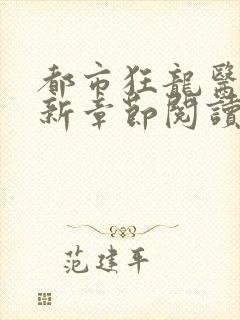 都市狂龍醫
新章節閱讀
范建平